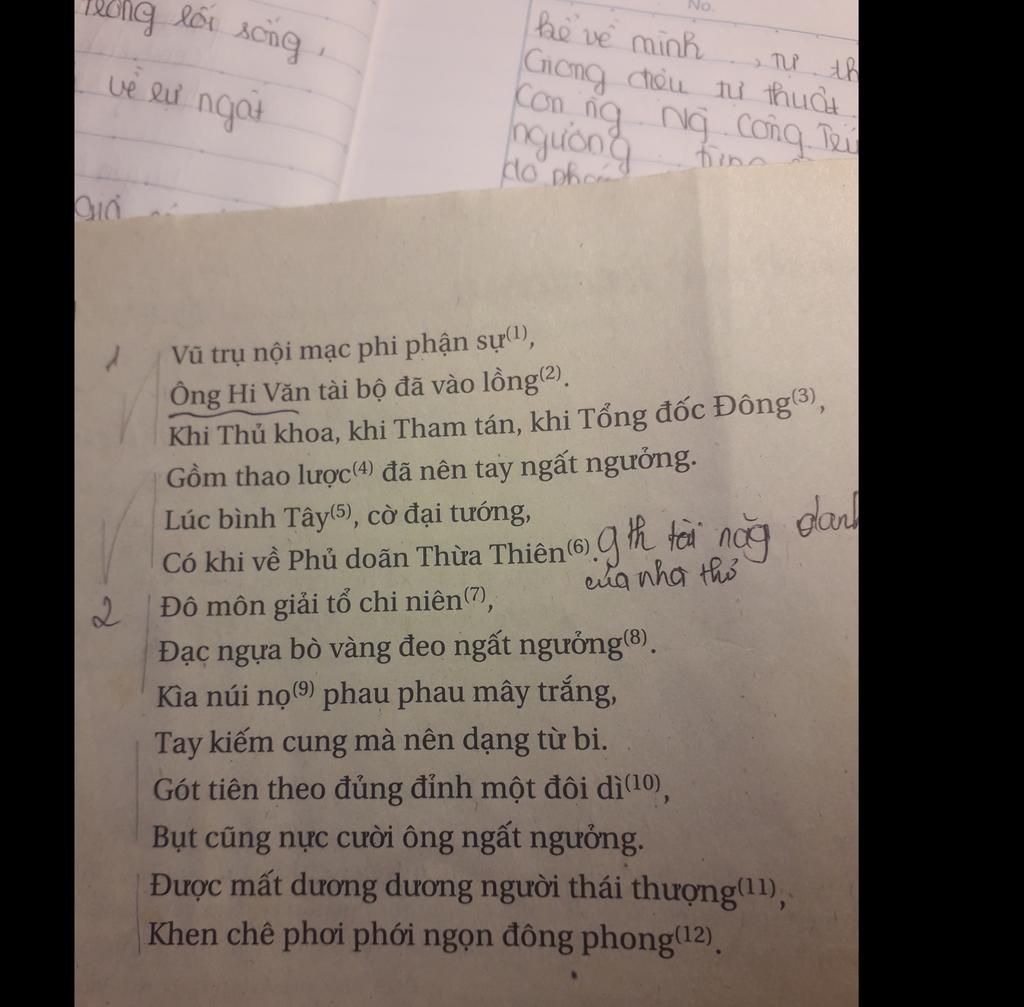 trong lối sống,
về sự ngất
No.
kể về mình, tự th
Giọng điệu tự thuật
Con ng Ng Công Trứ
ngưỡng
do
giá
1
Vũ trụ nội mạc phi phận sự(1),
Ông Hi Văn tài bộ đã vào lồng(2).
Khi Thủ khoa, khi Tham tán, khi Tổng đốc Đông(3),
Gồm thao lược(4) đã nên tay ngất ngưởng.
Lúc bình Tây(5), cờ đại tướng,
Có khi về Phủ doãn Thừa Thiên(6). gth tài năg danh
của nhà thơ
2 Đô môn giải tổ chi niên(7),
Đạc ngựa bò vàng đeo ngất ngưởng(8).
Kìa núi nọ(9) phau phau mây trắng,
Tay kiếm cung mà nên dạng từ bi.
Gót tiên theo đủng đỉnh một đôi dì(10),
Bụt cũng nực cười ông ngất ngưởng.
Được mất dương dương người thái thượng(11),
Khen chê phơi phới ngọn đông phong(12).